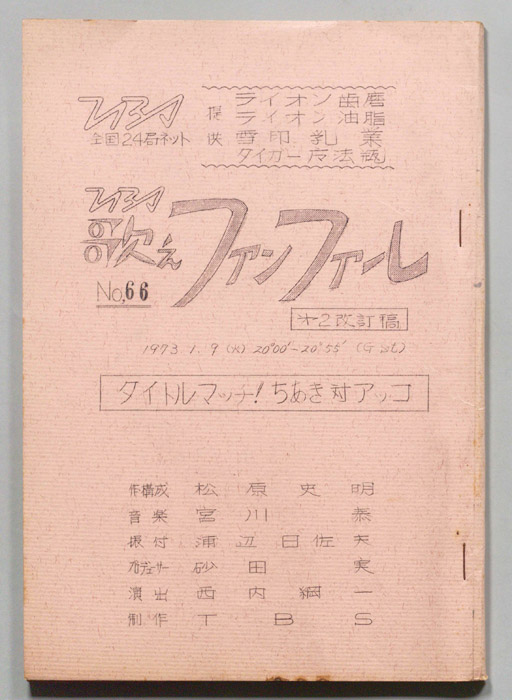 TBS
全国24局ネット
提供
ライオン歯磨
ライオン油脂
雪印乳業
タイガー魔法瓶
TBS
歌えファンファーレ
No,66
㐧2改訂稿
1973.1.9(火) 20°00'-20°55' (G st)
タイトルマッチ!ちあき対アッコ
作構成 松原史明
音楽 宮川泰
振付 浦辺日佐夫
プロデューサー 砂田実
演出 西内綱一
制作 TBS